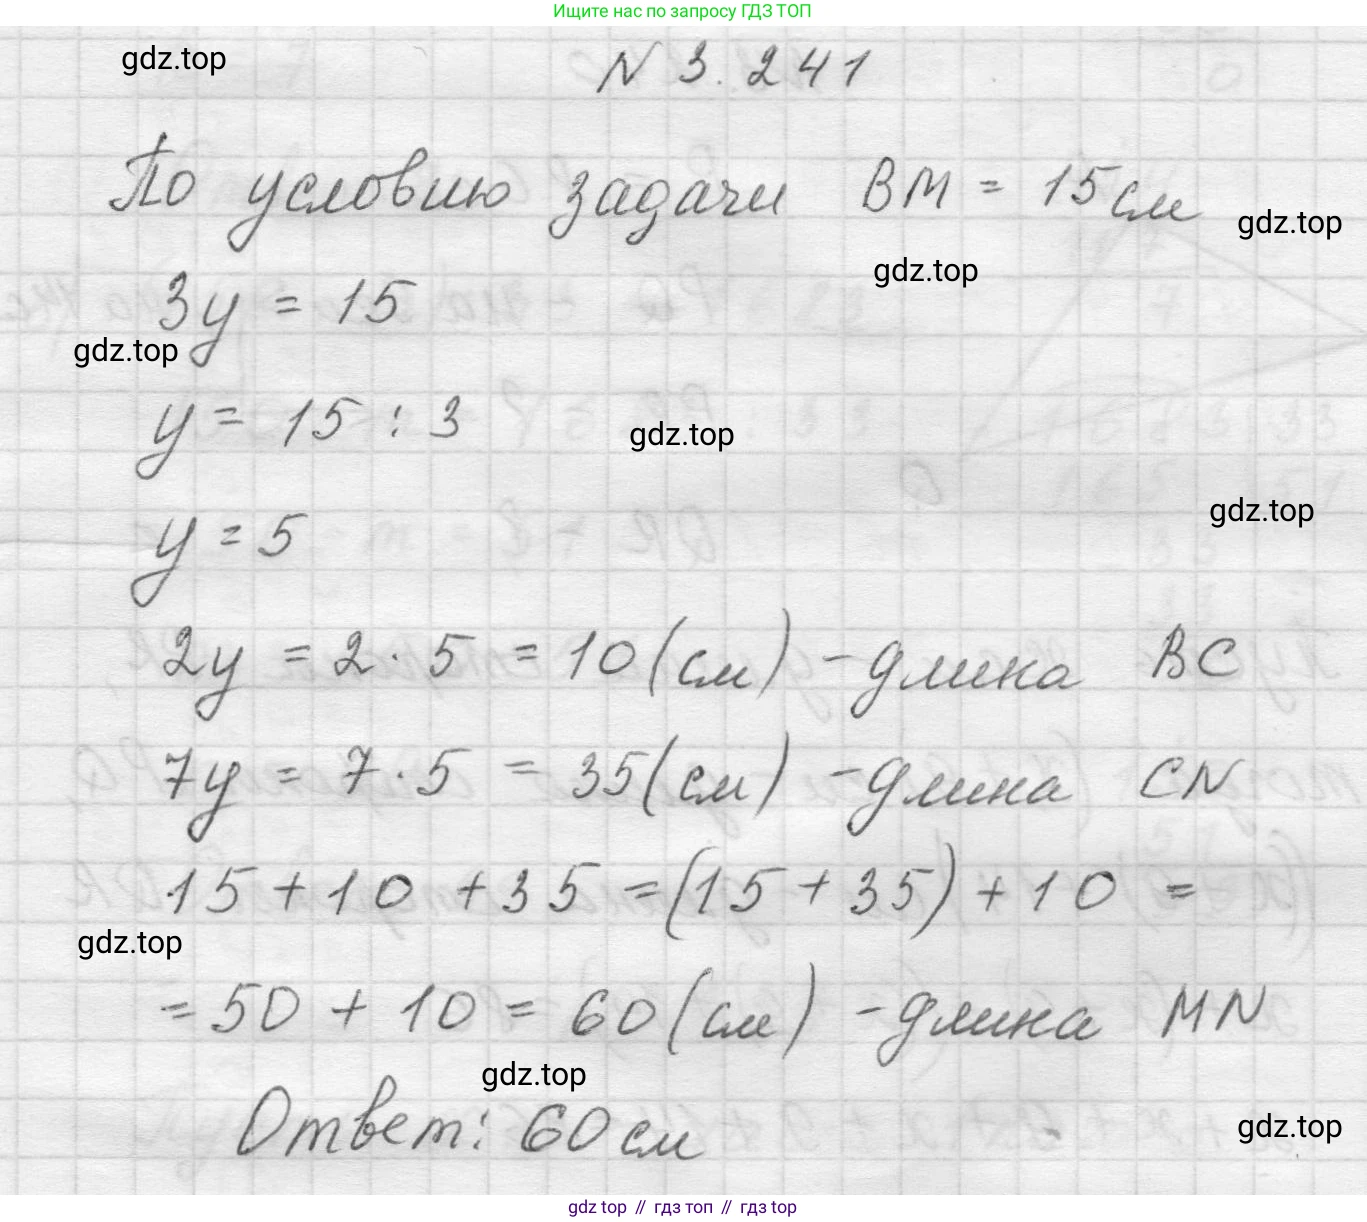 Ищите нас по запросу ГДЗ ТОП
gdz.top
N 3.241
По условию задачи BM = 15 см
gdz.top
gdz.top
3y = 15
gdz.top
y = 15 : 3
gdz.top
gdz.top
y = 5
2y = 2 · 5 = 10 (см) - длина BC
7y = 7 · 5 = 35 (см) - длина CN
15 + 10 + 35 = (15 + 35) + 10 =
gdz.top
= 50 + 10 = 60 (см) - длина MN
gdz.top
Ответ: 60 см
gdz.top
gdz.top // гдз топ // gdz top